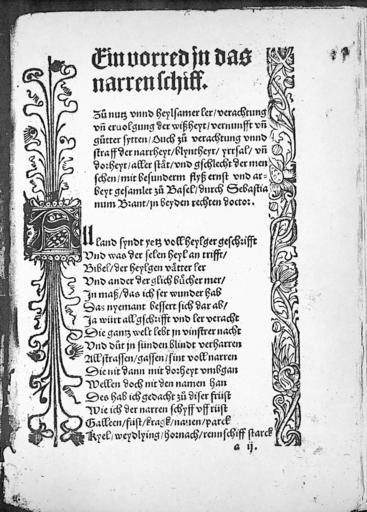 Ein vorred jn das
narren schiff.
Zů nutz vnnd heylsamer ler / verachtung
vñ ervolgung der wißheyt / vernunfft vñ
gůtter sytten / Ouch zů verachtung vnnd
straff der narrheyt / blyntheyt / yrrsal / vñ
dorheyt / aller stät / vnd gschlecht der men
schen / mit besunderm flyß ernst vnd ar-
beyt gesamlet zů Basel / durch Sebastia
num Brant / in beyden rechten doctor.
All land syndt yetz voll heylger geschrifft
Vnd was der selen heyl an trifft /
Bibel / der heylgen vätter ler
Vnd ander der glich bůcher mer /
In maß / das ich ser wunder hab
Das nyemant bessert sich dar ab /
Ja würt all gschrifft vnd ler veracht
Die gantz welt lebt in vinstrer nacht
Vnd důt in sünden blindt verharren
All strassen / gassen / sint voll narren
Die nit dann mit dorheyt vmbgan
Wellen doch nit den namen han
Des hab ich gedacht zů diser früst
Wie ich der narren schyff vff rüst
Galleen / füst / kragk / nauen / parck
Kyel / weydlying / hornach / rennschiff starck
a ij.